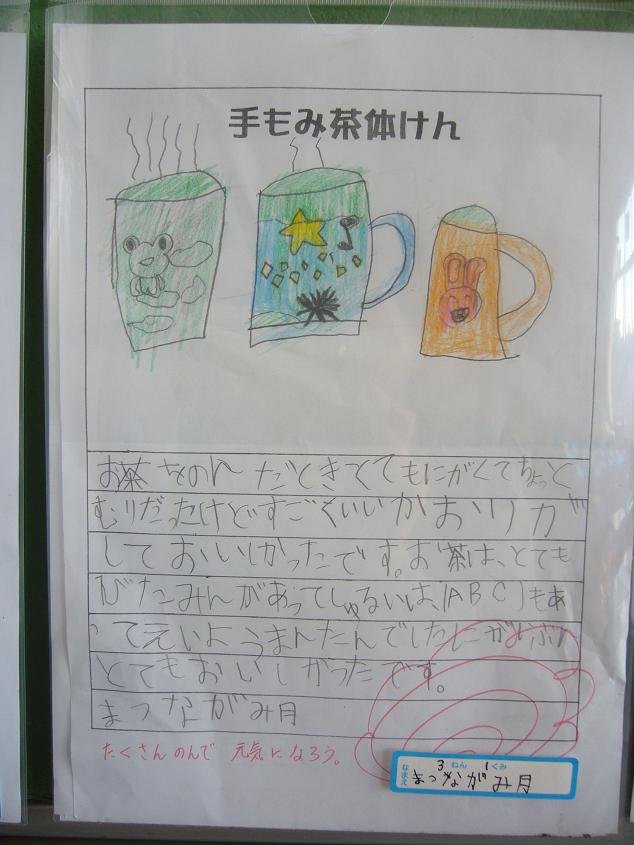 手もみ茶体けん
お茶をのんだときとてもにがくてちょっと
むりだったけどすごくいいかおりが
しておいしかったです。お茶は、とても
びたみんがあってしゅるいは、(ABC)もあ
ってえいようまんたんでした
とてもおいしかったです。
まつながみ月
たくさんのんで 元気になろう。
なまえ
3ねん1くみ
まつながみ月